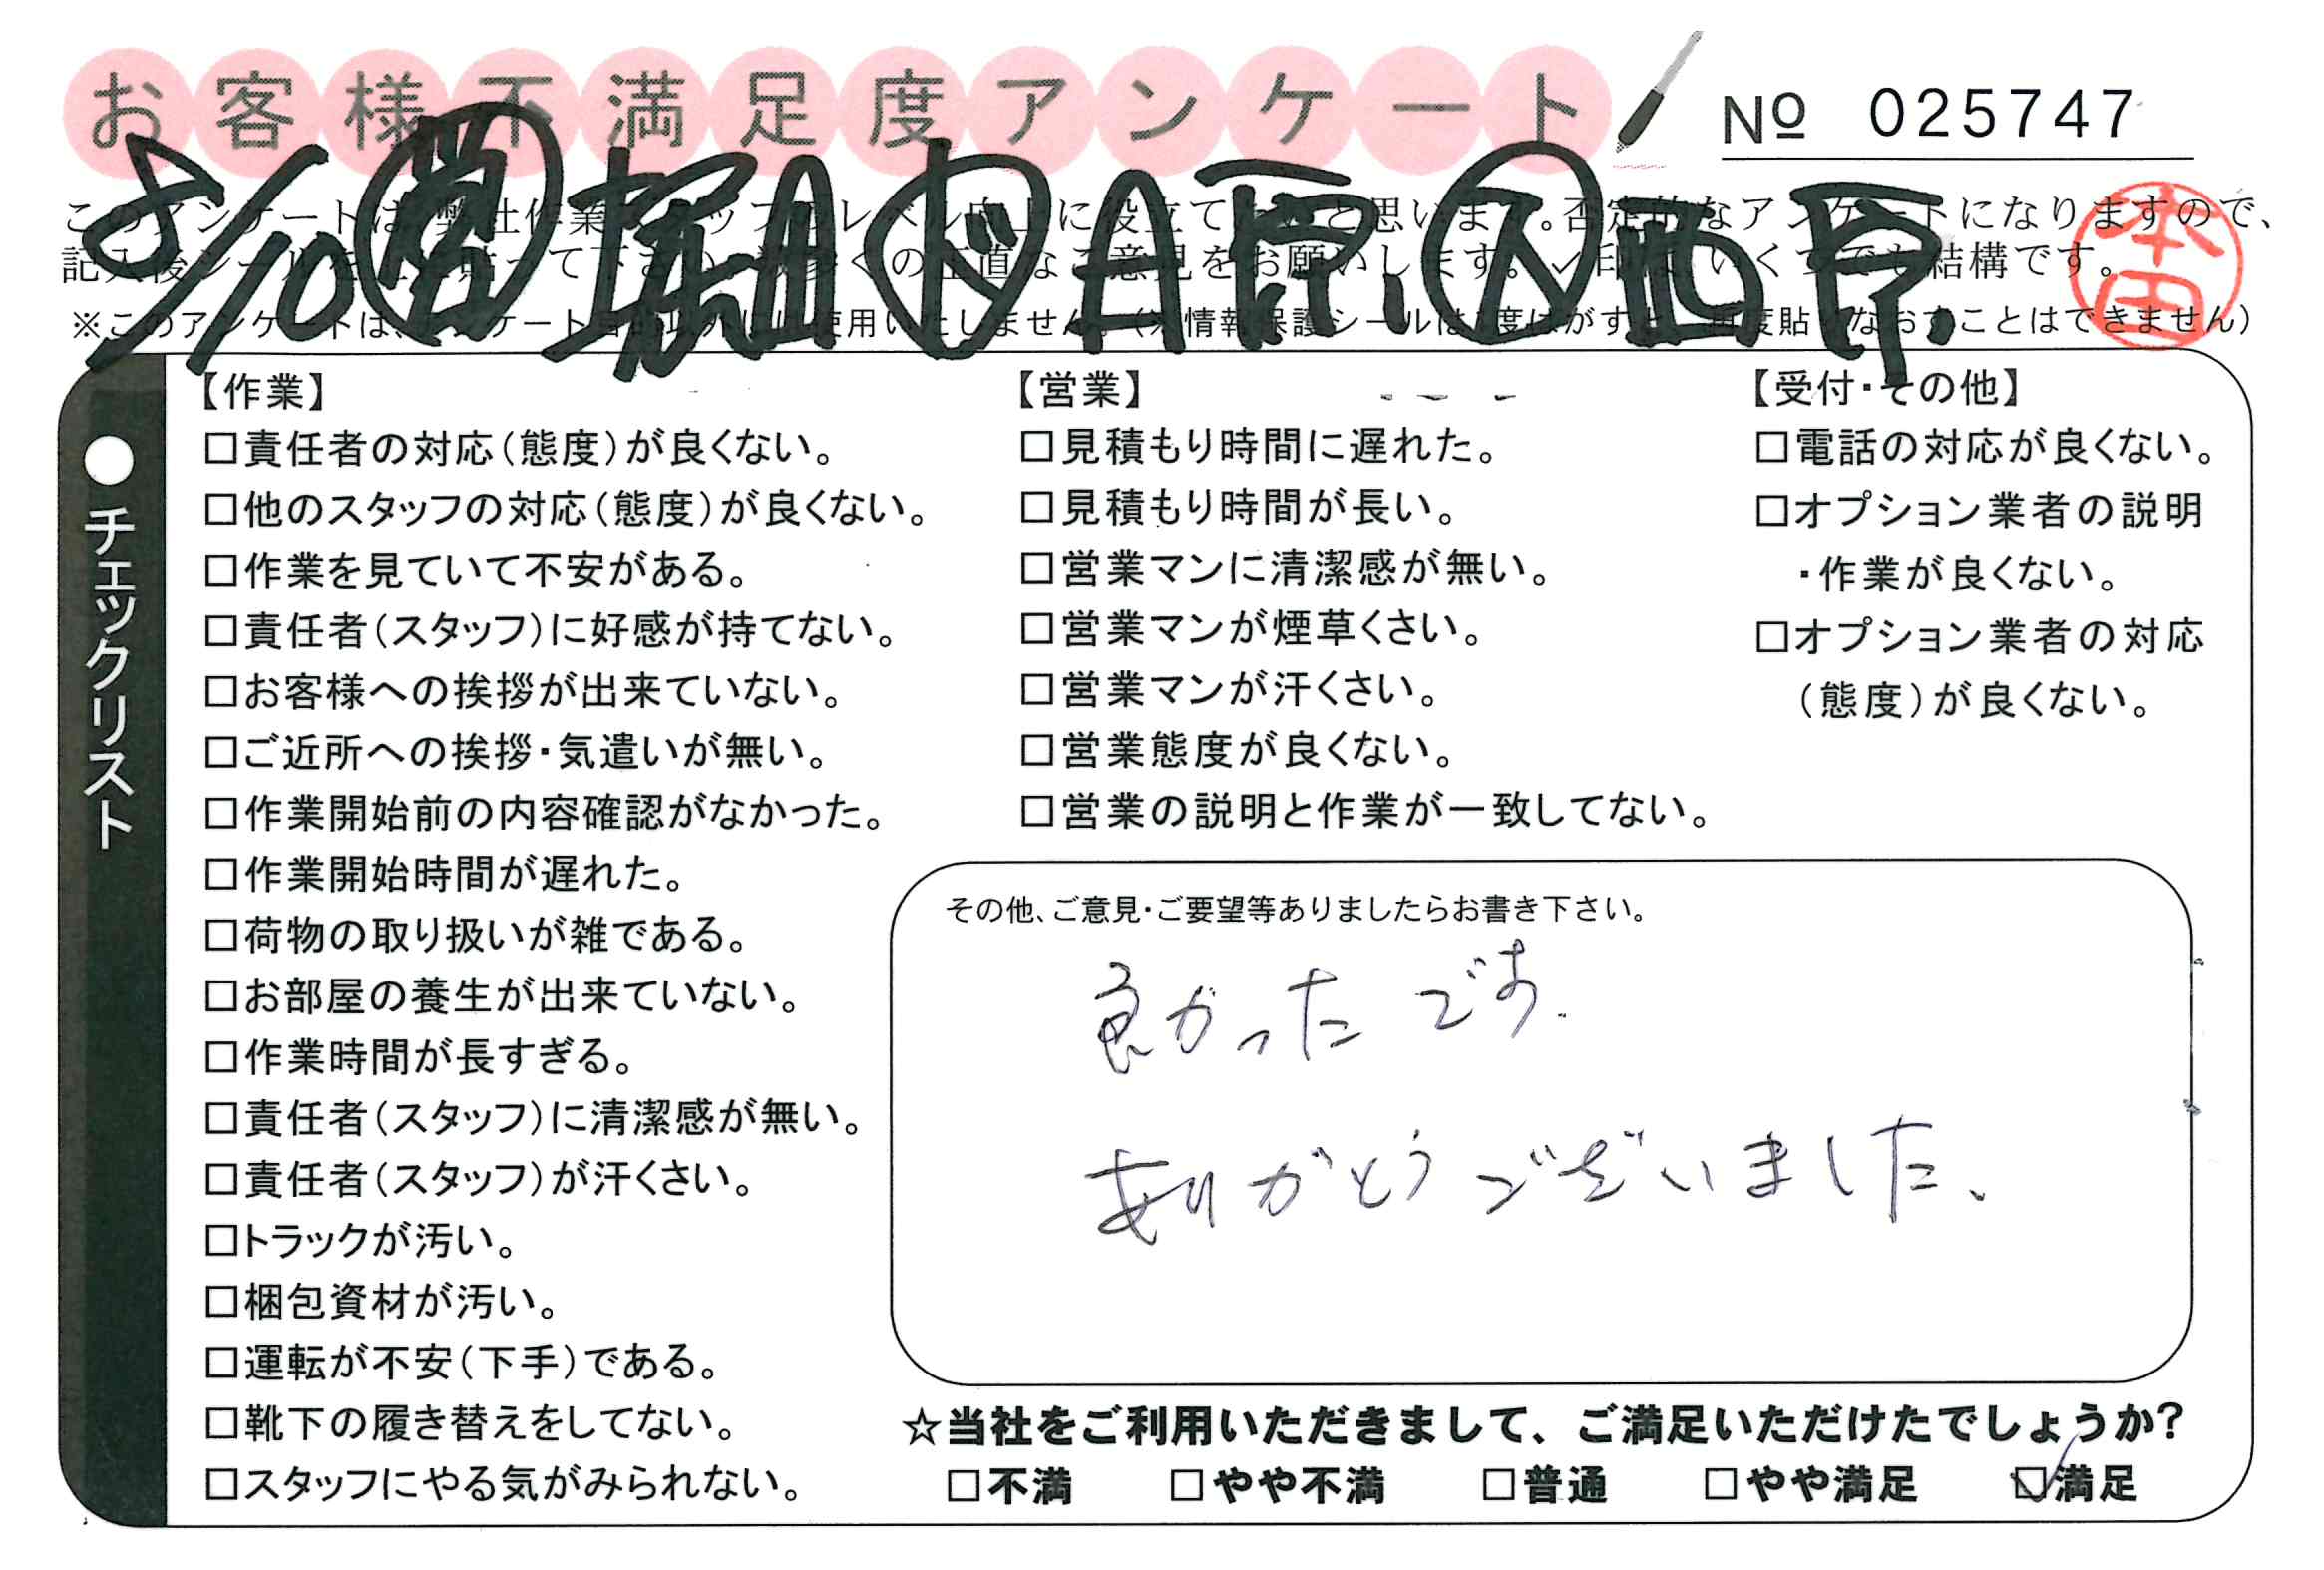 お客様不満足度アンケート
№ 025747
8/10 営 堀田 ド 大戸、人 西戸
このアンケートは、弊社作業スタッフのレベル向上に役立てたいと思います。否定的なアンケートになりますので、
記入後シールを上に貼って下さい。数多くの正直なご意見をお願いします。✓印は、いくつでも結構です。
※このアンケートは、アンケート目的以外には使用いたしません。(※情報保護シールは1度はがすと、再度貼りなおすことはできません)
本田
●チェックリスト
【作業】
□責任者の対応(態度)が良くない。
□他のスタッフの対応(態度)が良くない。
□作業を見ていて不安がある。
□責任者(スタッフ)に好感が持てない。
□お客様への挨拶が出来ていない。
□ご近所への挨拶・気遣いが無い。
□作業開始前の内容確認がなかった。
□作業開始時間が遅れた。
□荷物の取り扱いが雑である。
□お部屋の養生が出来ていない。
□作業時間が長すぎる。
□責任者(スタッフ)に清潔感が無い。
□責任者(スタッフ)が汗くさい。
□トラックが汚い。
□梱包資材が汚い。
□運転が不安(下手)である。
□靴下の履き替えをしてない。
□スタッフにやる気がみられない。
【営業】
□見積もり時間に遅れた。
□見積もり時間が長い。
□営業マンに清潔感が無い。
□営業マンが煙草くさい。
□営業マンが汗くさい。
□営業態度が良くない。
□営業の説明と作業が一致してない。
【受付・その他】
□電話の対応が良くない。
□オプション業者の説明
・作業が良くない。
□オプション業者の対応
(態度)が良くない。
その他、ご意見・ご要望等ありましたらお書き下さい。
良かったです.
ありがとうございました、
☆当社をご利用いただきまして、ご満足いただけたでしょうか?
□不満 □やや不満 □普通 □やや満足 ☑満足